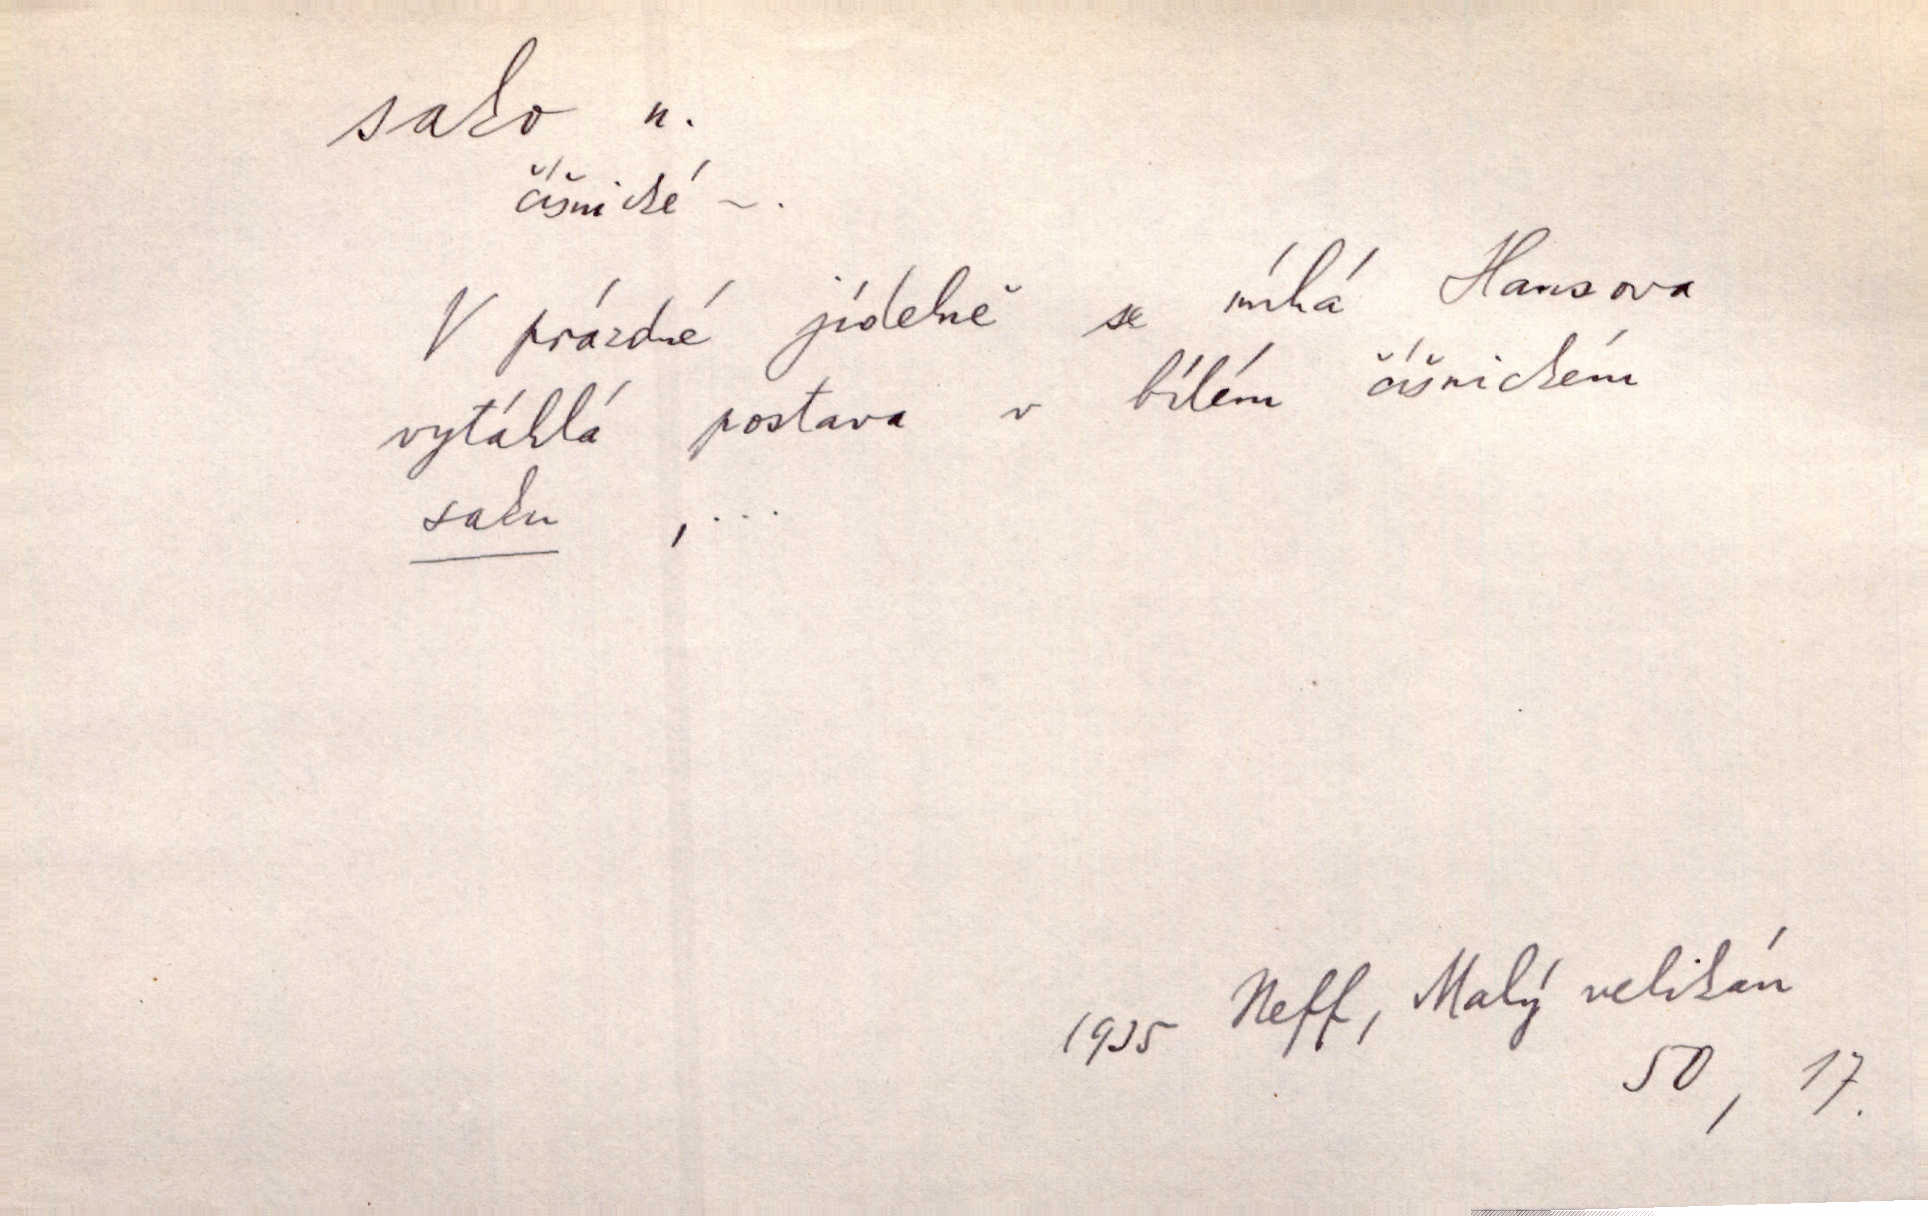 sako n.
číšnické ~.
V prázdné jídelně se míhá Hansova
vytáhlá postava v bílém číšnickém
saku ,...
1935 Neff, Malý velikán
50, 17.